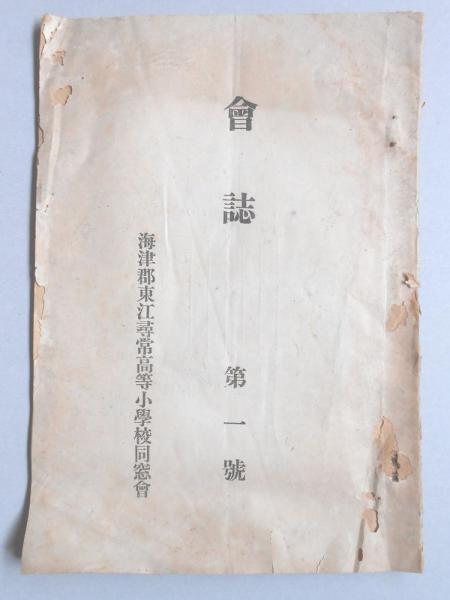 會誌 第一號
海津郡東江尋常高等小學校同窓會